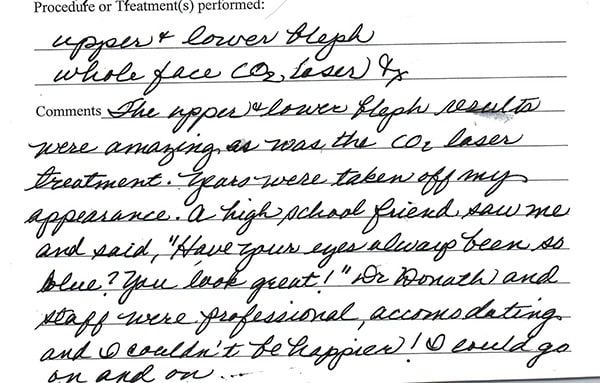 Procedure or Treatment(s) performed:
upper & lower bleph
whole face CO2 laser tx
Comments The upper & lower bleph results
were amazing as was the CO2 laser
treatment. Years were taken off my
appearance. A high school friend saw me
and said, "Have your eyes always been so
blue? You look great!" Dr Donath and
staff were professional, accomodating
and I couldn't be happier! I could go
on and on ...